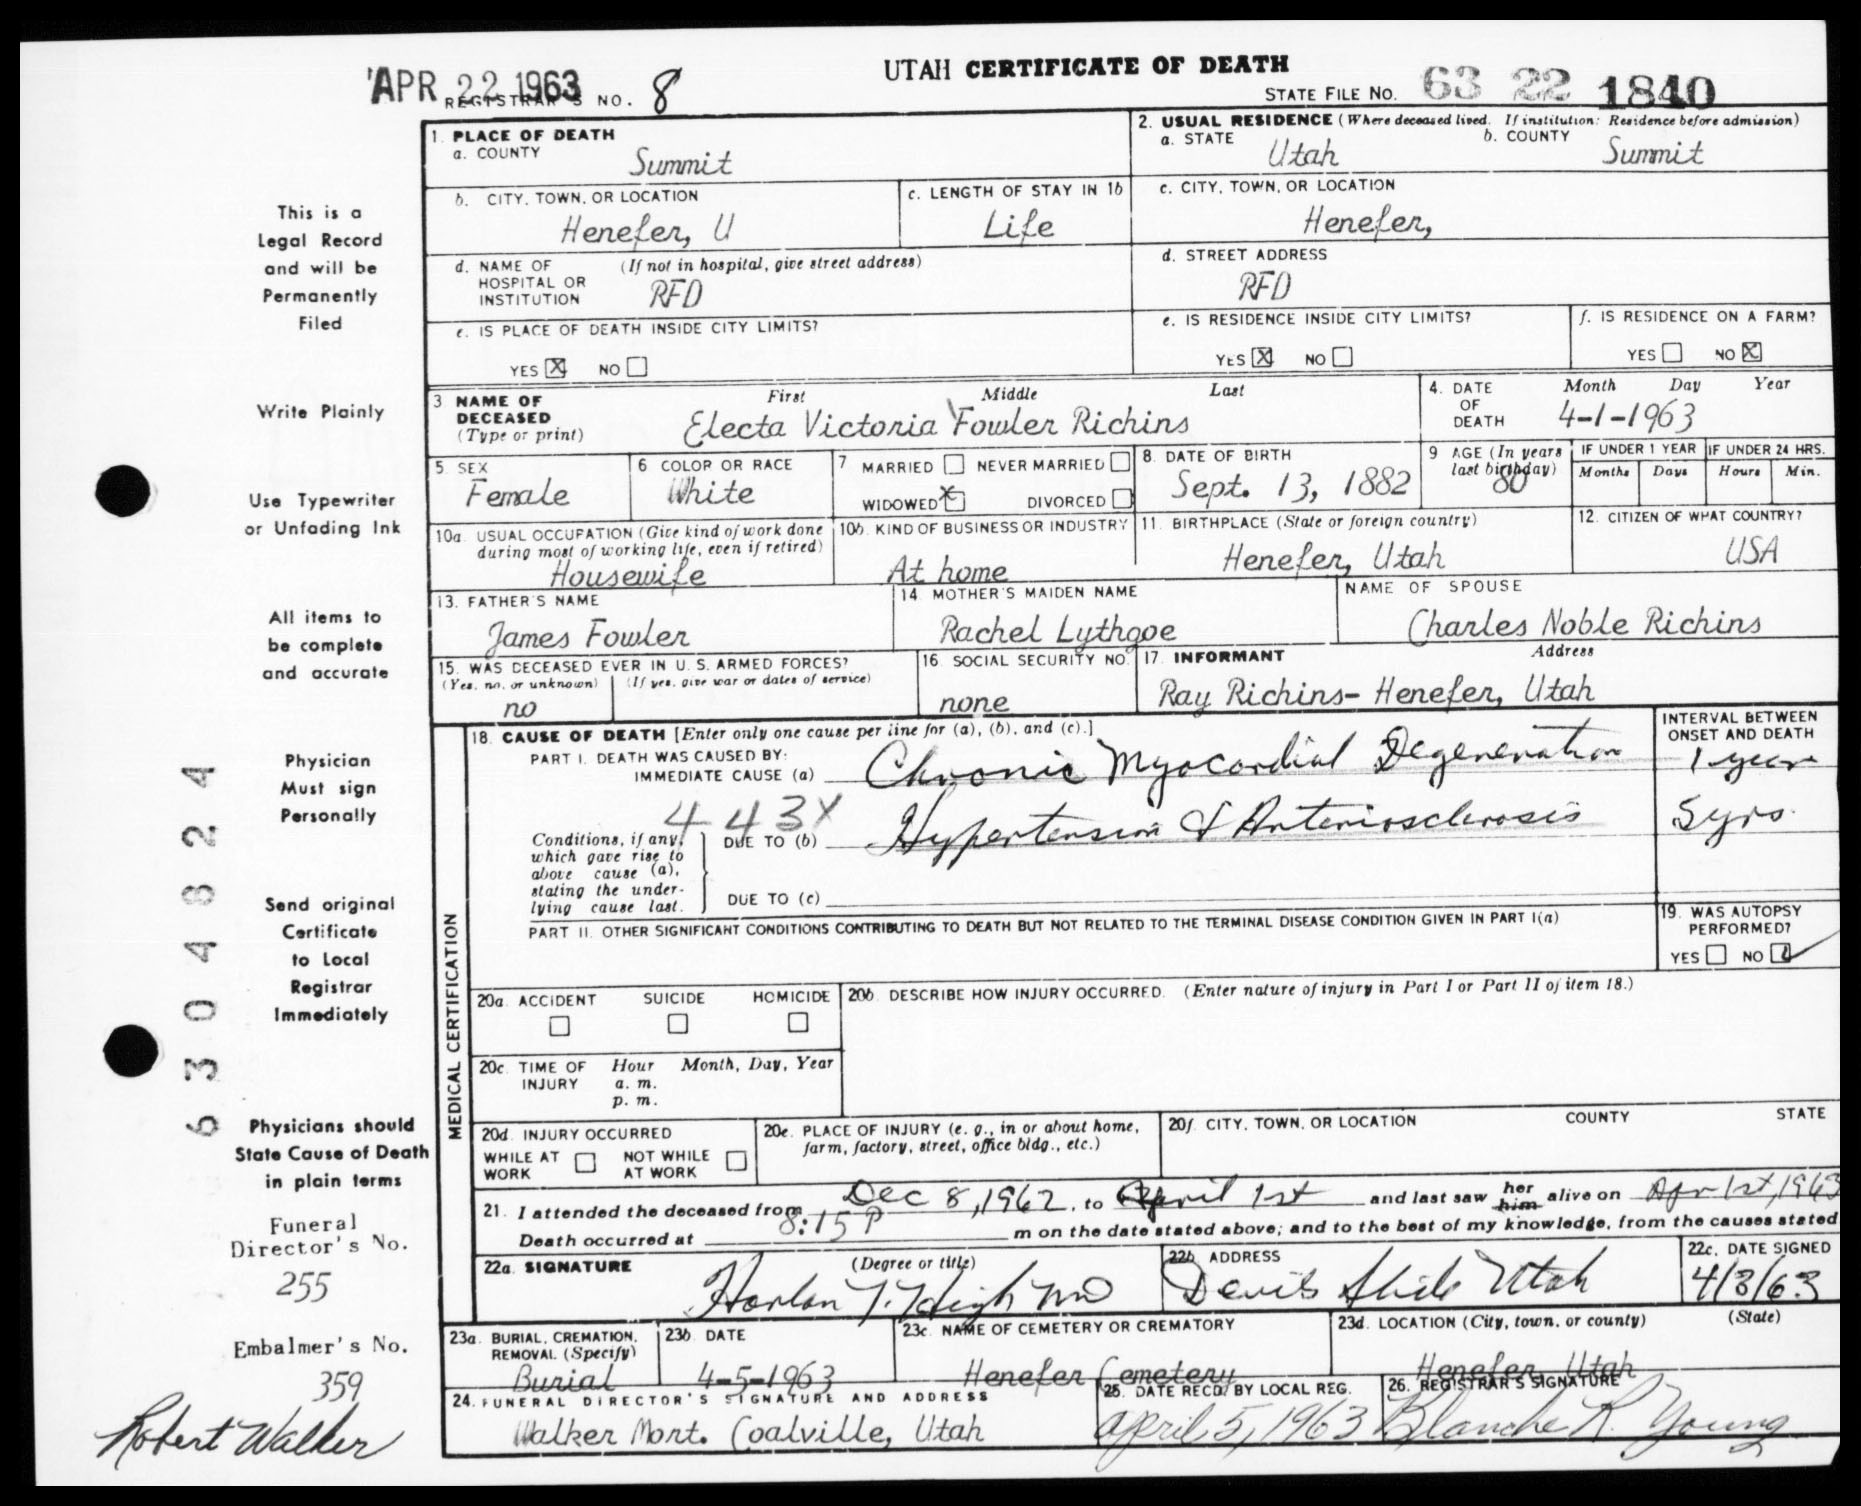 APR 22 1963
REGISTRAR'S NO. 8
UTAH CERTIFICATE OF DEATH
STATE FILE NO. 63 22 1840
1. PLACE OF DEATH
a. COUNTY
Summit
2. USUAL RESIDENCE (Where deceased lived. If institution: Residence before admission)
a. STATE
Utah
b. COUNTY
Summit
b. CITY, TOWN, OR LOCATION
Henefer, U
c. LENGTH OF STAY IN 1b
Life
c. CITY, TOWN, OR LOCATION
Henefer,
d. NAME OF HOSPITAL OR INSTITUTION
(If not in hospital, give street address)
RFD
d. STREET ADDRESS
RFD
e. IS PLACE OF DEATH INSIDE CITY LIMITS?
YES X NO
e. IS RESIDENCE INSIDE CITY LIMITS?
YES X NO
f. IS RESIDENCE ON A FARM?
YES NO X
3 NAME OF DECEASED
(Type or print)
First Middle Last
Electa Victoria Fowler Richins
4. DATE OF DEATH
Month Day Year
4-1-1963
5. SEX
Female
6 COLOR OR RACE
White
7 MARRIED NEVER MARRIED
WIDOWED X DIVORCED
8. DATE OF BIRTH
Sept. 13, 1882
9 AGE (In years last birthday)
80
IF UNDER 1 YEAR
Months Days
IF UNDER 24 HRS.
Hours Min.
10a. USUAL OCCUPATION (Give kind of work done during most of working life, even if retired)
Housewife
10b. KIND OF BUSINESS OR INDUSTRY
At home
11. BIRTHPLACE (State or foreign country)
Henefer, Utah
12. CITIZEN OF WHAT COUNTRY?
USA
13. FATHER'S NAME
James Fowler
14. MOTHER'S MAIDEN NAME
Rachel Lythgoe
NAME OF SPOUSE
Charles Noble Richins
15. WAS DECEASED EVER IN U. S. ARMED FORCES?
(Yes, no, or unknown) (If yes, give war or dates of service)
no
16. SOCIAL SECURITY NO.
none
17. INFORMANT Address
Ray Richins- Henefer, Utah
MEDICAL CERTIFICATION
18. CAUSE OF DEATH [Enter only one cause per line for (a), (b), and (c).]
INTERVAL BETWEEN ONSET AND DEATH
PART I. DEATH WAS CAUSED BY:
IMMEDIATE CAUSE (a) Chronic Myocardial Degeneration
1 year
443X
Conditions, if any, which gave rise to above cause (a), stating the underlying cause last.
DUE TO (b) Hypertension & Arteriosclerosis
5 yrs.
DUE TO (c)
PART II. OTHER SIGNIFICANT CONDITIONS CONTRIBUTING TO DEATH BUT NOT RELATED TO THE TERMINAL DISEASE CONDITION GIVEN IN PART I(a)
19. WAS AUTOPSY PERFORMED?
YES NO ✓
20a. ACCIDENT SUICIDE HOMICIDE
20b. DESCRIBE HOW INJURY OCCURRED. (Enter nature of injury in Part I or Part II of item 18.)
20c. TIME OF INJURY
Hour Month, Day, Year
a. m.
p. m.
20d. INJURY OCCURRED
WHILE AT WORK NOT WHILE AT WORK
20e. PLACE OF INJURY (e. g., in or about home, farm, factory, street, office bldg., etc.)
20f. CITY, TOWN, OR LOCATION COUNTY STATE
21. I attended the deceased from Dec 8, 1962, to April 1st and last saw her him alive on Apr 1st, 1963
Death occurred at 8:15 P m on the date stated above; and to the best of my knowledge, from the causes stated
22a. SIGNATURE (Degree or title)
Harlan T. High MD
22b. ADDRESS
Devils Slide Utah
22c. DATE SIGNED
4/3/63
23a. BURIAL, CREMATION, REMOVAL (Specify)
Burial
23b. DATE
4-5-1963
23c. NAME OF CEMETERY OR CREMATORY
Henefer Cemetery
23d. LOCATION (City, town, or county) (State)
Henefer, Utah
24. FUNERAL DIRECTOR'S SIGNATURE AND ADDRESS
Walker Mort. Coalville, Utah
25. DATE RECD. BY LOCAL REG.
April 5, 1963
26. REGISTRAR'S SIGNATURE
Blanche R. Young
This is a
Legal Record
and will be
Permanently
Filed
Write Plainly
Use Typewriter
or Unfading Ink
All items to
be complete
and accurate
Physician
Must sign
Personally
Send original
Certificate
to Local
Registrar
Immediately
Physicians should
State Cause of Death
in plain terms
Funeral
Director's No.
255
Embalmer's No.
359
Robert Walker
63048 24